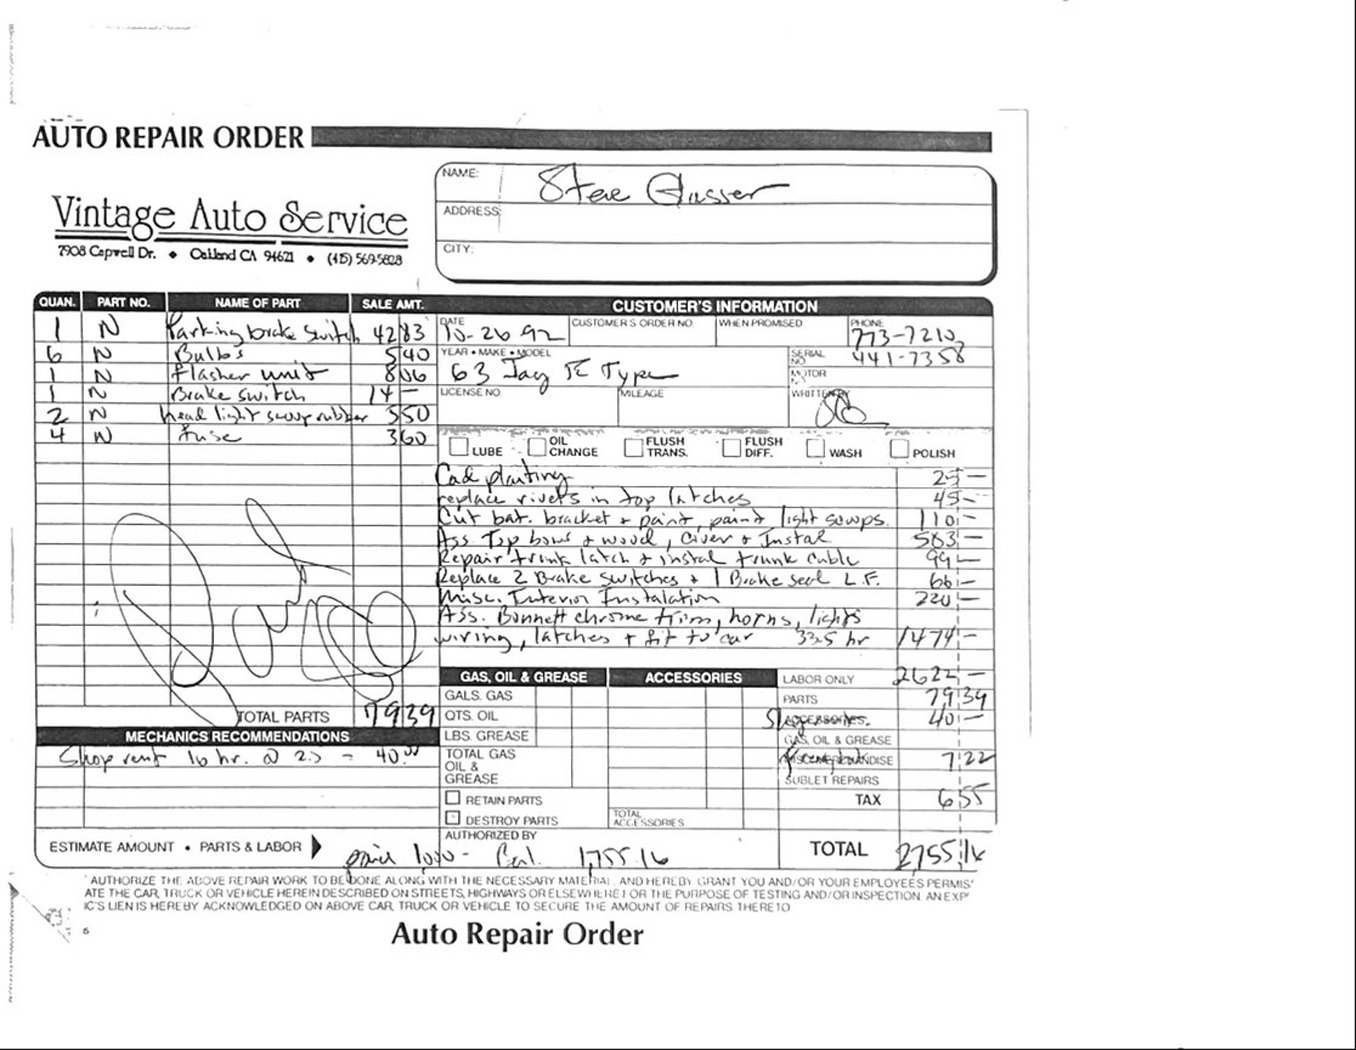 AUTO REPAIR ORDER
Vintage Auto Service
7908 Capwell Dr. ♦ Oakland CA 94621 ♦ (415) 569-5828
NAME: Steve
ADDRESS:
CITY:
QUAN. PART NO. NAME OF PART SALE AMT.
1 N Parking brake switch 42 83
6 N Bulbs 5 40
1 N flasher unit 8 06
1 N Brake switch 14 —
2 N head light scoop rubber 5 50
4 N fuse 3 60
TOTAL PARTS 79 39
MECHANICS RECOMMENDATIONS
Shop rent 16 hr. @ 2.5 = 40.00
ESTIMATE AMOUNT • PARTS & LABOR
CUSTOMER'S INFORMATION
DATE 10-26 92 CUSTOMER'S ORDER NO. WHEN PROMISED PHONE 773-7210
441-7358
YEAR • MAKE • MODEL 63 Jag E Type SERIAL NO.
MOTOR NO.
LICENSE NO. MILEAGE WRITTEN BY
LUBE OIL CHANGE FLUSH TRANS. FLUSH DIFF. WASH POLISH
Cad plating 25 —
replace rivets in top latches 45 —
Cut bat. bracket + paint, paint light scoops. 110 —
Ass Top bows + wood, cover + Instal 583 —
Repair trunk latch + instal trunk cable 99 —
Replace 2 Brake switches + 1 Brake seal L.F. 66 —
Misc. Interior Instalation 220 —
Ass. Bonnett chrome trim, horns, lights
wiring, latches + fit to car 33.5 hr 1474 —
GAS, OIL & GREASE ACCESSORIES
GALS. GAS
QTS. OIL
LBS. GREASE
TOTAL GAS OIL & GREASE
RETAIN PARTS
DESTROY PARTS
TOTAL ACCESSORIES
LABOR ONLY 2622 —
PARTS 79 39
ACCESSORIES 40 —
GAS, OIL & GREASE
MISC. MERCHANDISE 7 22
SUBLET REPAIRS
TAX 6 55
AUTHORIZED BY
paid 1,000 - Bal. 1,755.16
TOTAL 2755 16
AUTHORIZE THE ABOVE REPAIR WORK TO BE DONE ALONG WITH THE NECESSARY MATERIAL, AND HEREBY GRANT YOU AND/OR YOUR EMPLOYEES PERMIS
ATE THE CAR, TRUCK OR VEHICLE HEREIN DESCRIBED ON STREETS, HIGHWAYS OR ELSEWHERE FOR THE PURPOSE OF TESTING AND/OR INSPECTION. AN EXP
IC'S LIEN IS HEREBY ACKNOWLEDGED ON ABOVE CAR, TRUCK OR VEHICLE TO SECURE THE AMOUNT OF REPAIRS THERETO
6
Auto Repair Order